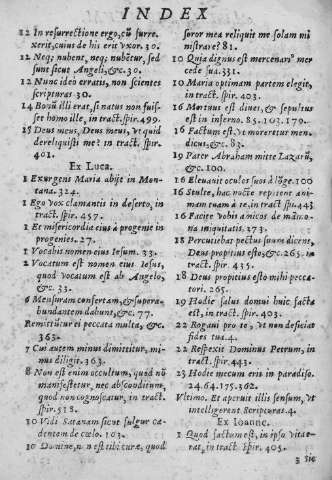 INDEX
12 In resurrectione ergo, cũ surre-
xerit, cuius de his erit vxor. 30.
12 Neq; nubent, neq; nubẽtur, sed
sunt sicut Angeli, &c. 30.
12 Nunc ideò erratis, non scientes
scripturas 30.
14 Bonũ illi erat, si natus non fuis-
set homo ille, in tract. spir. 499.
15 Deus meus, Deus meus, vt quid
dereliquisti me? in tract. spir.
401.
Ex Luca.
1 Exurgens Maria abijt in Mon-
tana. 324.
1 Ego vox clamantis in deserto, in
tract. spir. 457.
1 Et misericordia eius à progenie in
progenies. 27.
1 Vocabis nomen eius Iesum. 33.
2 Vocatum est nomen eius Iesus,
quod vocatum est ab Angelo,
&c. 33.
6 Mensuram confertam, & supera-
bundantem dabunt, &c. 77.
Remittũtur ei peccata multa, &c.
363.
7 Cui autem minus dimittitur, mi-
nus diligit. 363.
8 Non est enim occultum, quod nõ
manifestetur, nec absconditum,
quod non cognoscatur, in tract.
spir. 518.
10 Vidi Satanam sicut fulgur ca-
dentem de cœlo. 103.
10 Domine, non est tibi curæ, quod
soror mea reliquit me solam mi
nistrare? 81.
10 Quia dignus est mercenari'' mer
cede sua. 331.
10 Maria optimam partem elegit,
in tract. spir. 403.
16 Mortuus est diues, & sepultus
est in inferno. 85. 103. 179.
16 Factum est, vt moreretur men-
dicus, &c. 83.
19 Pater Abraham mitte Lazarũ,
&c. 100.
16 Eleuauit oculos suos à lõge. 100
16 Stulte, hac nocte repetent ani-
mam tuam à te, in tract. spir. 443
16 Facite vobis amicos de mãmo-
na iniquitatis. 373.
18 Percutiebat pectus suum dicens,
Deus propitius esto, &c. 265. in
tract. spir. 435.
18 Deus propitius esto mihi pecca-
tori. 265.
19 Hodie salus domui huic facta
est, in tract. spir. 403.
22 Rogaui pro te, vt non deficiat
fides tua. 4.
22 Respexit Dominus Petrum, in
tract. spir. 443.
23 Hodie mecum eris in paradiso.
24. 64. 175. 362.
Vltimo. Et aperuit illis sensum, vt
intelligerent Scripturas. 4.
Ex Ioanne.
1 Quod factum est, in ipso vita e-
rat, in tract. spir. 405.
3 Sic